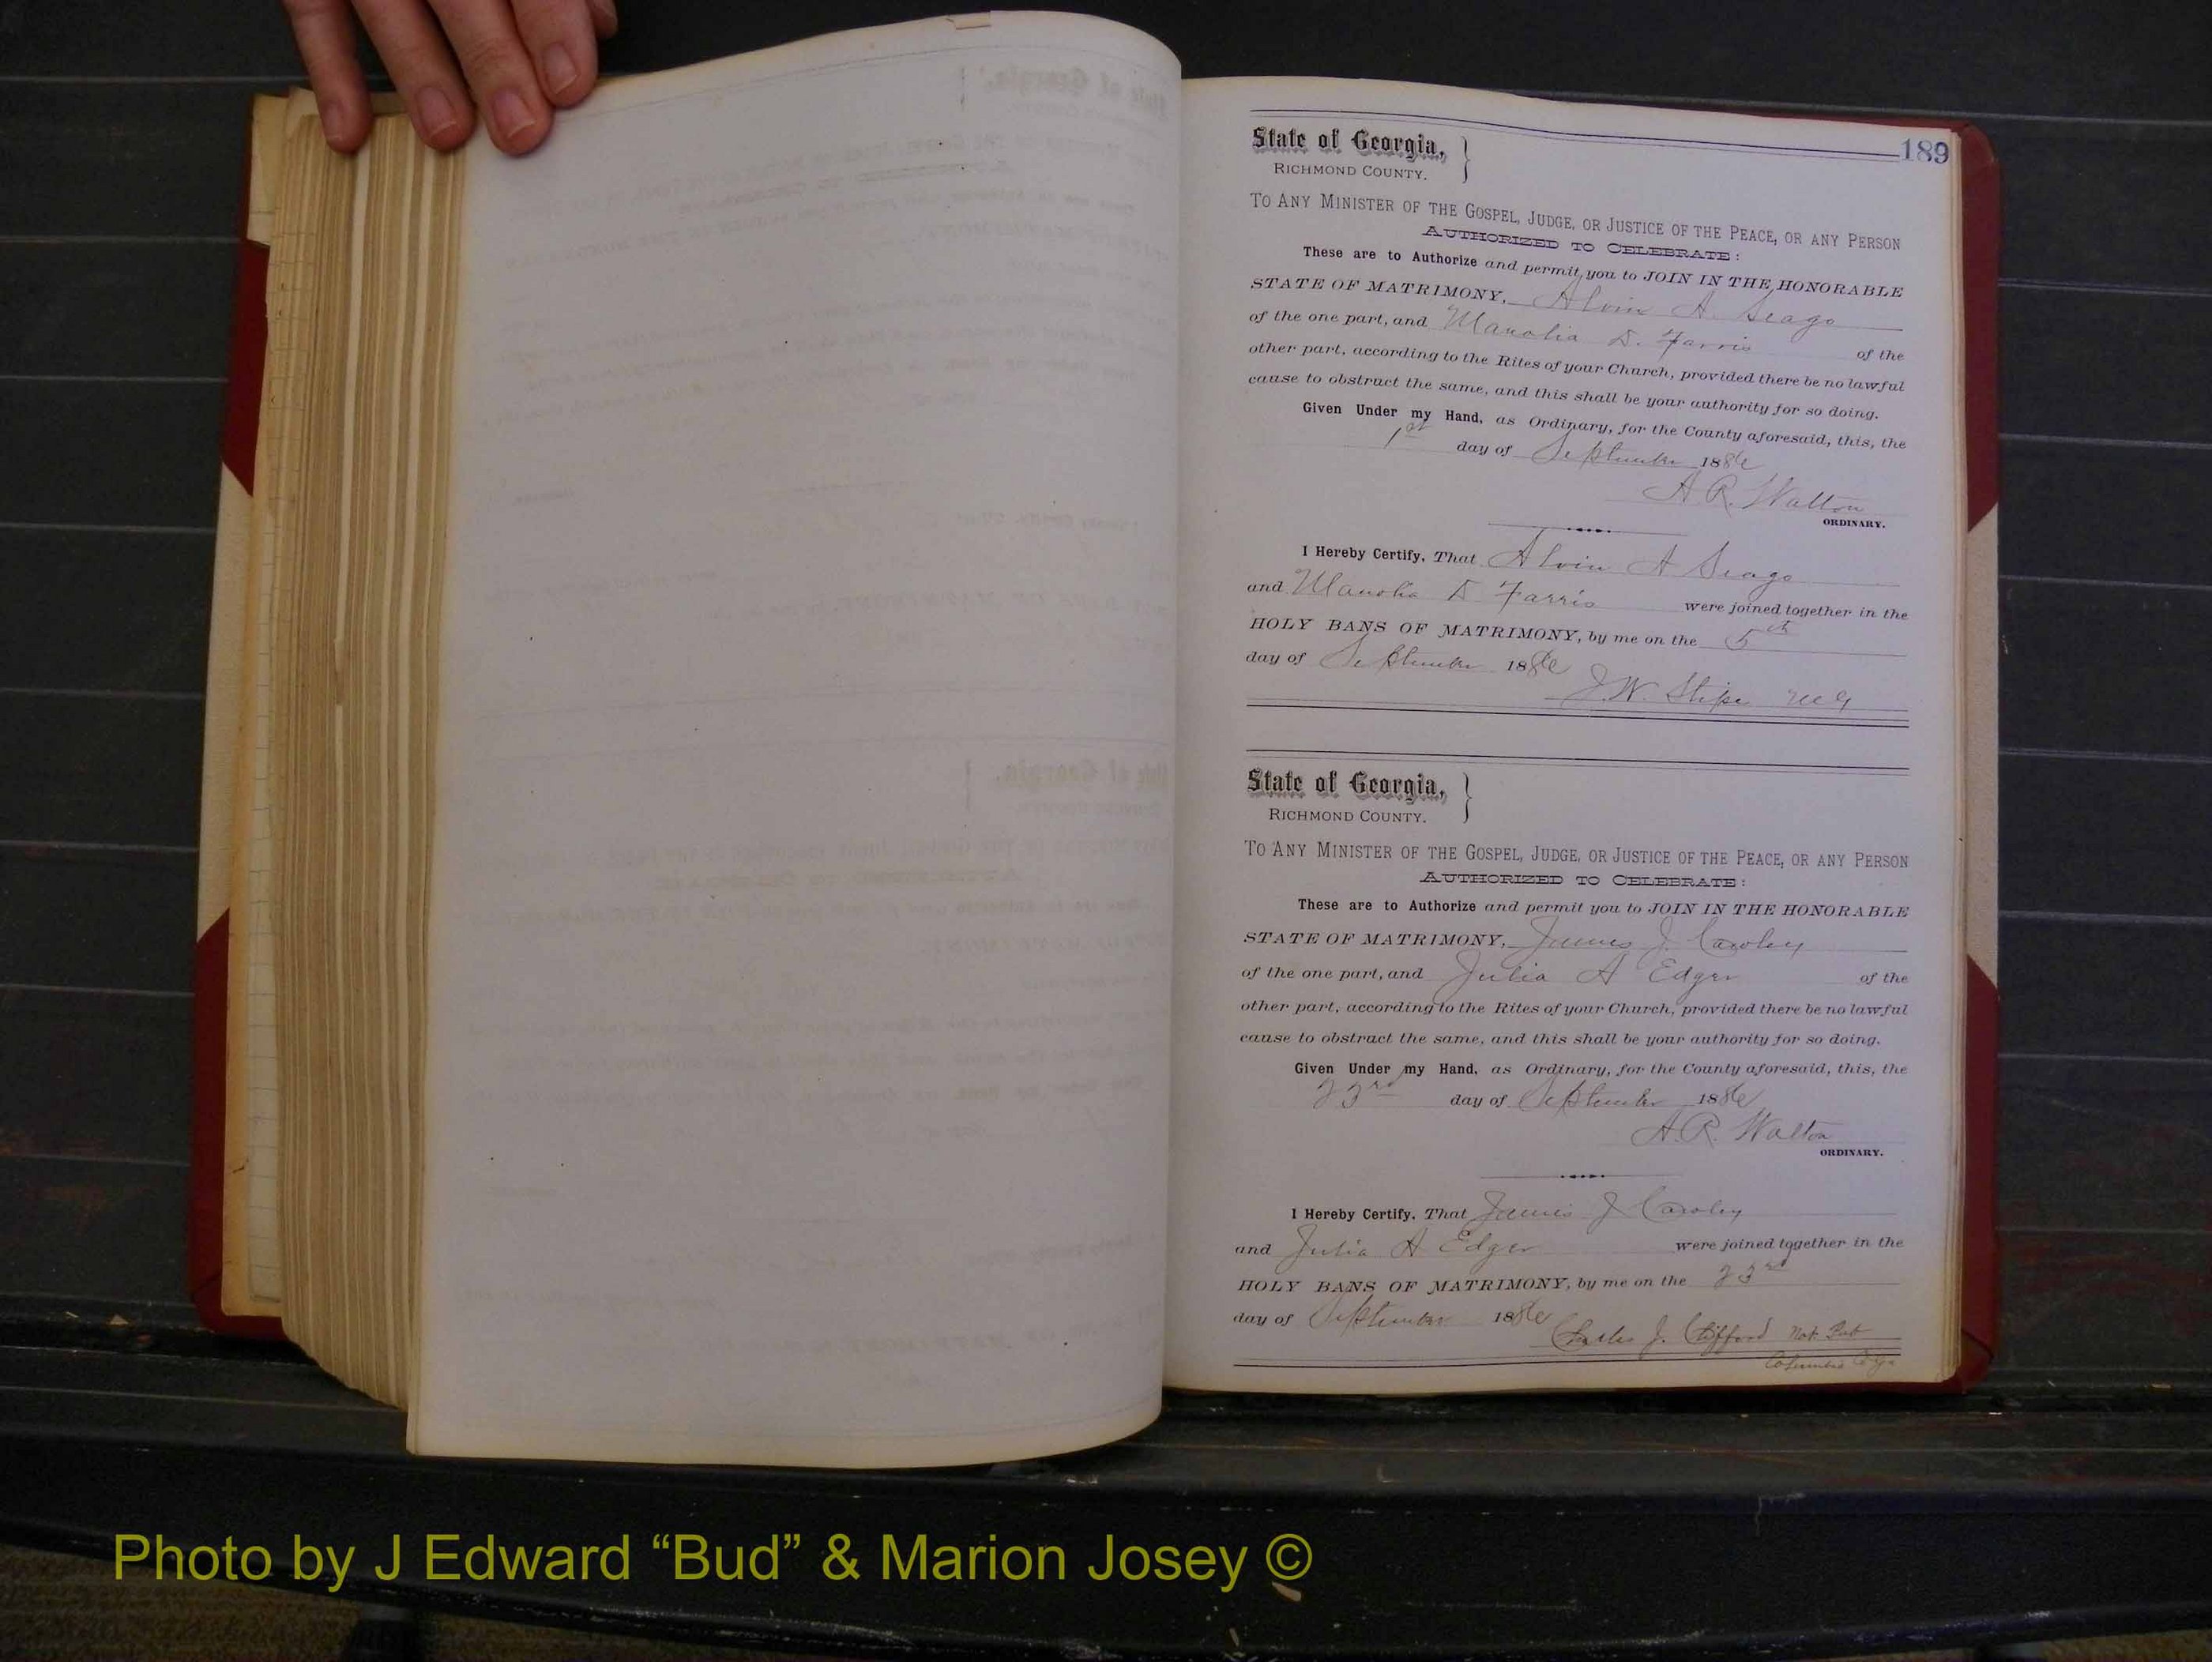 189
State of Georgia,
RICHMOND COUNTY.
TO ANY MINISTER OF THE GOSPEL, JUDGE, OR JUSTICE OF THE PEACE, OR ANY PERSON
AUTHORIZED TO CELEBRATE:
These are to Authorize and permit you to JOIN IN THE HONORABLE
STATE OF MATRIMONY, Alvin A. Seago
of the one part, and D. Farris of the
other part, according to the Rites of your Church, provided there be no lawful
cause to obstruct the same, and this shall be your authority for so doing.
Given Under my Hand, as Ordinary, for the County aforesaid, this, the
1st day of September 1886
A. R. Walton
ORDINARY.
I Hereby Certify, That Alvin A Seago
and D Farris were joined together in the
HOLY BANS OF MATRIMONY, by me on the 5th
day of September 1886
J. W. Stipe M G
State of Georgia,
RICHMOND COUNTY.
TO ANY MINISTER OF THE GOSPEL, JUDGE, OR JUSTICE OF THE PEACE, OR ANY PERSON
AUTHORIZED TO CELEBRATE:
These are to Authorize and permit you to JOIN IN THE HONORABLE
STATE OF MATRIMONY, James J.
of the one part, and Julia A Edger of the
other part, according to the Rites of your Church, provided there be no lawful
cause to obstruct the same, and this shall be your authority for so doing.
Given Under my Hand, as Ordinary, for the County aforesaid, this, the
23rd day of September 1886
A. R. Walton
ORDINARY.
I Hereby Certify, That James J
and Julia A Edger were joined together in the
HOLY BANS OF MATRIMONY, by me on the 23rd
day of September 1886
Charles J. Clifford Not. Pub
Columbia Co Ga
Photo by J Edward “Bud” & Marion Josey ©